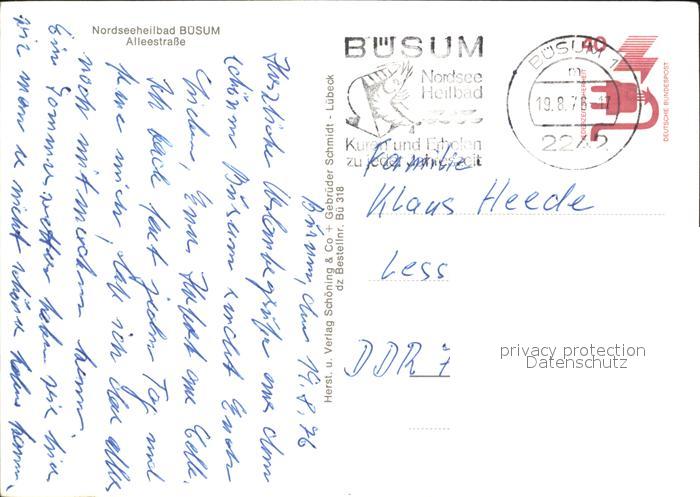 Nordseeheilbad BÜSUM
Alleestraße
Büsum, den 19.8.76
Herzliche Urlaubsgrüße aus dem
schönen Büsum sendet Euch
Ich bade fast jeden Tag und
freue mich, daß ich das alles
noch mitmachen kann.
Ein Sommerwetter haben wir hier
wie man es nicht schöner haben kann.
Herst. u. Verlag Schöning & Co + Gebrüder Schmidt - Lübeck
dz Bestellnr. Bü 318
BÜSUM
Nordsee
Heilbad
Kuren und Erholen
zu jeder Jahreszeit
BÜSUM 1
m
19.8.76-17
2242
40
JEDERZEIT SICHERHEIT
DEUTSCHE BUNDESPOST
Familie
Klaus Heede
Less
DDR 7
privacy protection
Datenschutz